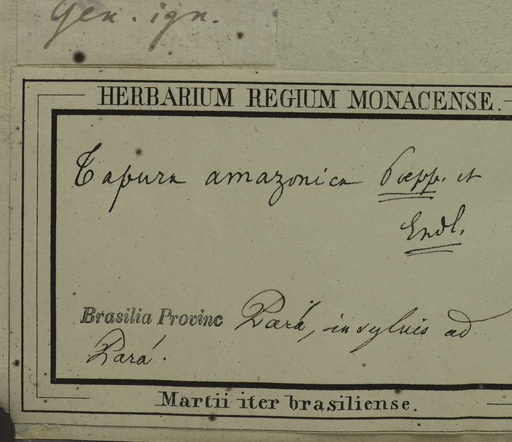 Gen. ign.
HERBARIUM REGIUM MONACENSE.
Tapura amazonica Poepp. et
Endl.
Brasilia Provinc Pará, in sylvis ad
Pará.
Martii iter brasiliense.